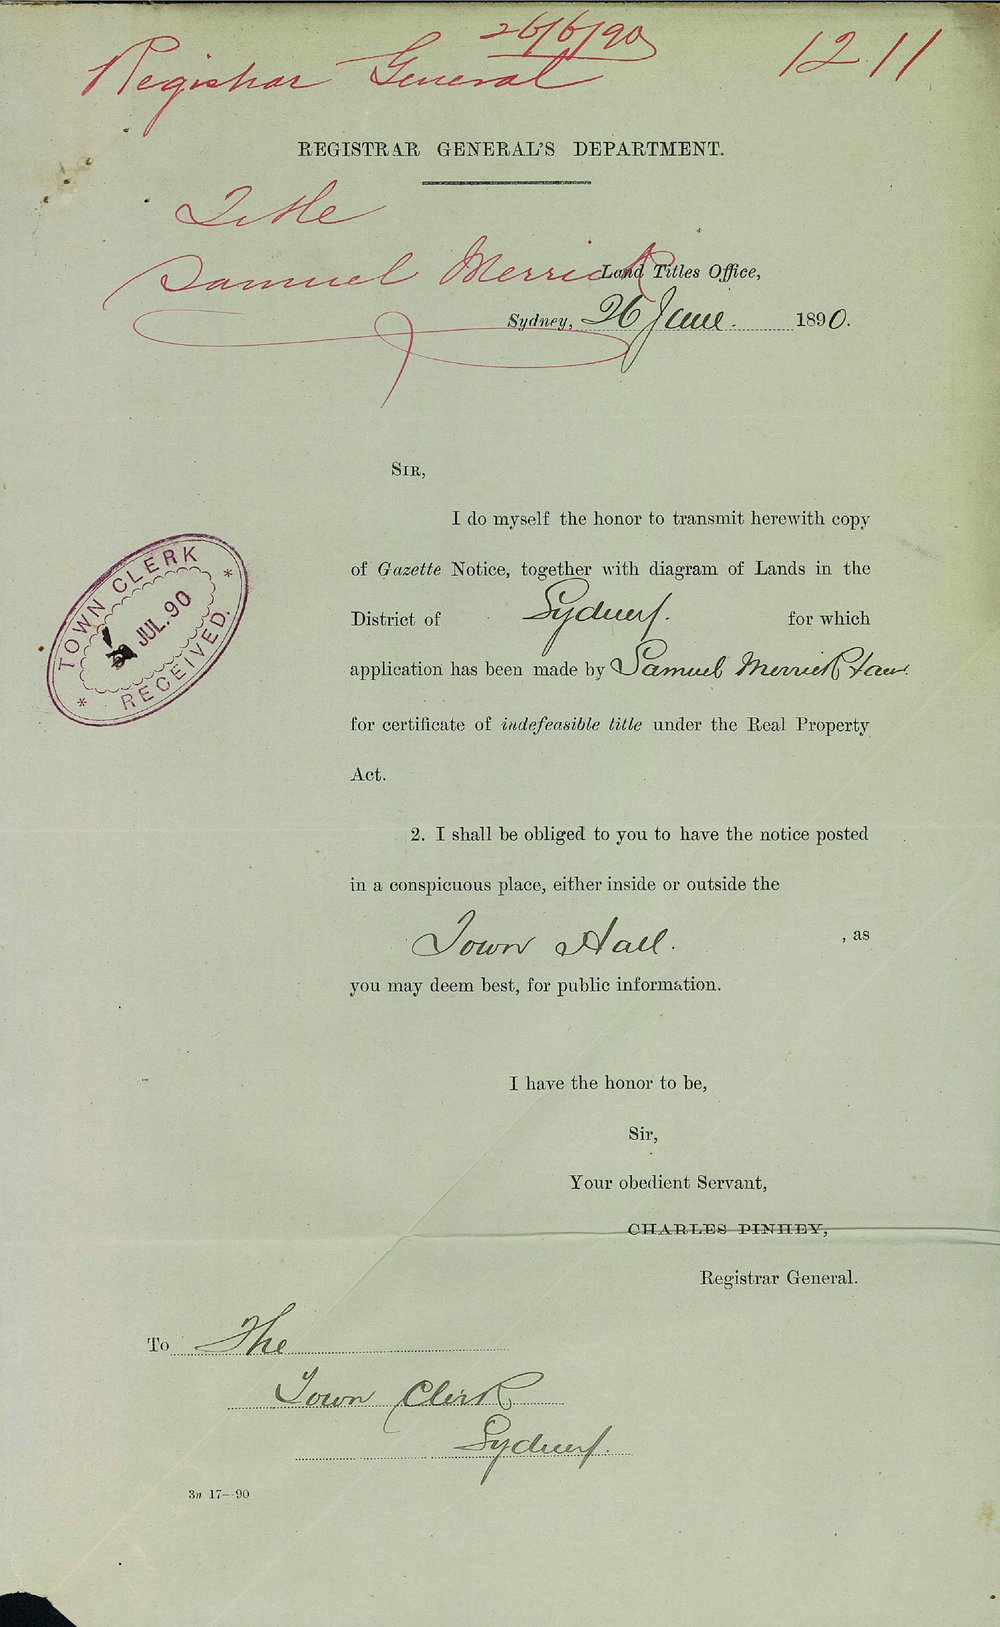 26/6/90
Registrar General
1211
REGISTRAR GENERAL'S DEPARTMENT.
Title
Samuel Merrick
Land Titles Office,
Sydney, 26 June. 1890.
SIR,
I do myself the honor to transmit herewith copy
of Gazette Notice, together with diagram of Lands in the
District of Sydney. for which
application has been made by Samuel Merrick
for certificate of indefeasible title under the Real Property
Act.
TOWN CLERK
JUL. 90
RECEIVED.
2. I shall be obliged to you to have the notice posted
in a conspicuous place, either inside or outside the
Town Hall. , as
you may deem best, for public information.
I have the honor to be,
Sir,
Your obedient Servant,
CHARLES PINHEY,
Registrar General.
To The
Town Clerk
Sydney.
3n 17--90